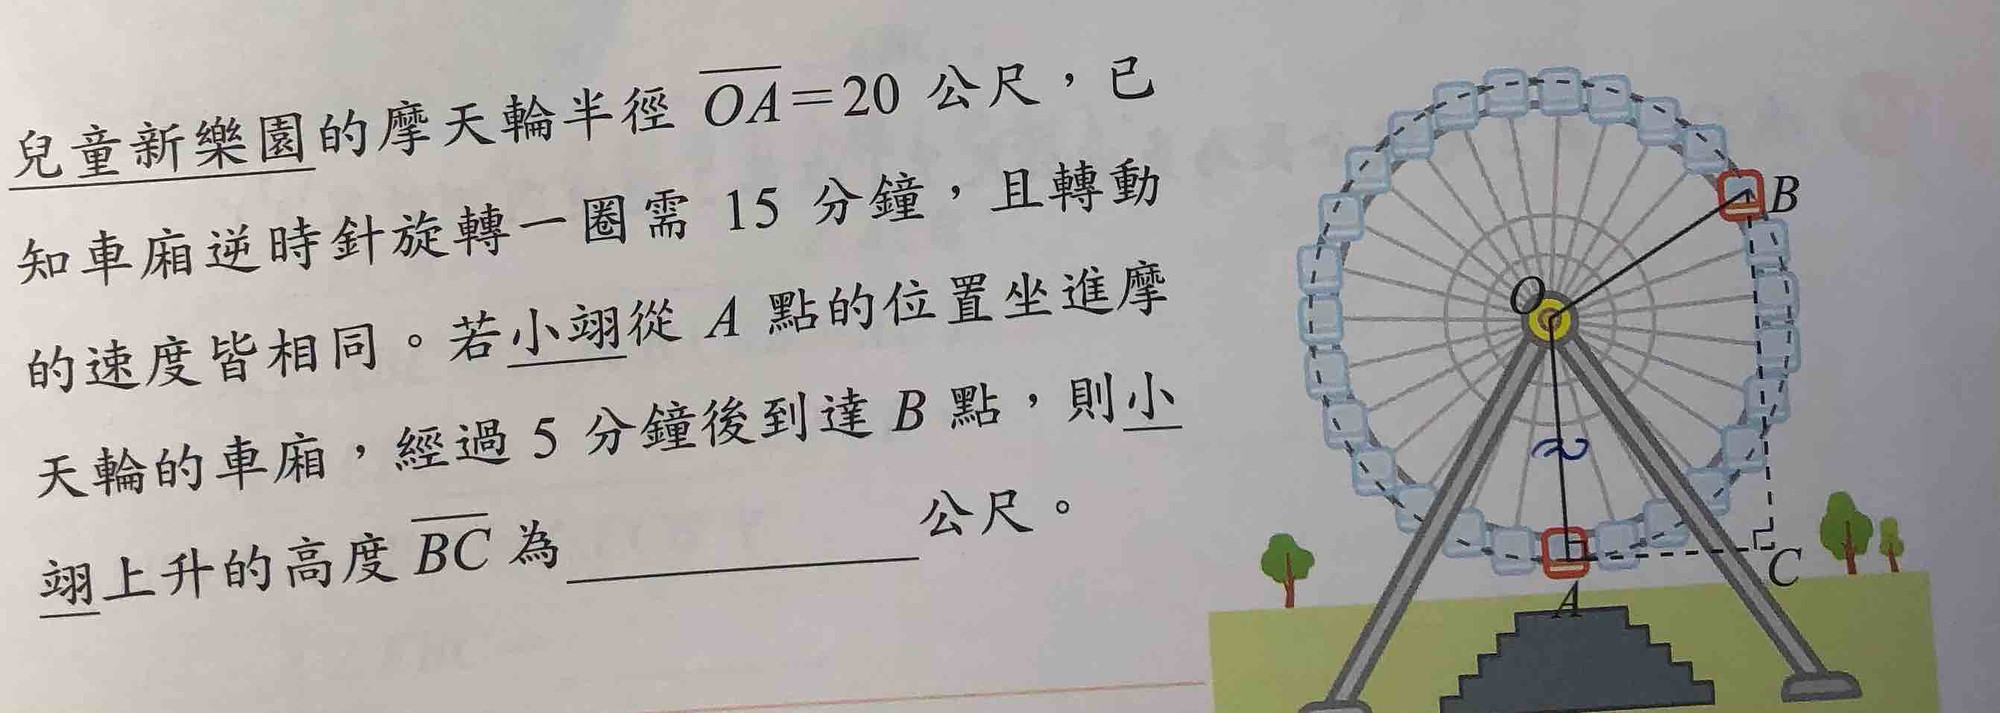 兒童新樂園的摩天輪半徑 OA=20 公尺，已
知車廂逆時針旋轉一圈需 15 分鐘，且轉動
的速度皆相同。若小翊從 A 點的位置坐進摩
天輪的車廂，經過 5 分鐘後到達 B 點，則小
翊上升的高度 BC 為 公尺。
B
O
A
C